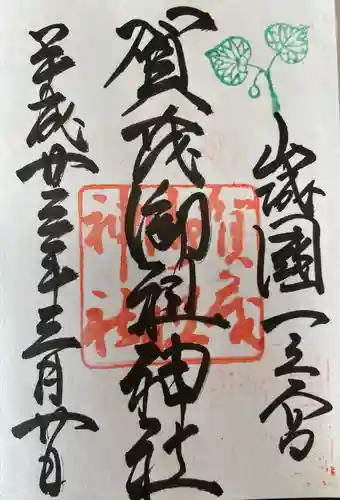 山城國一之宮
賀茂御祖神社
賀茂
御祖
神社
平成廿三年三月廿日